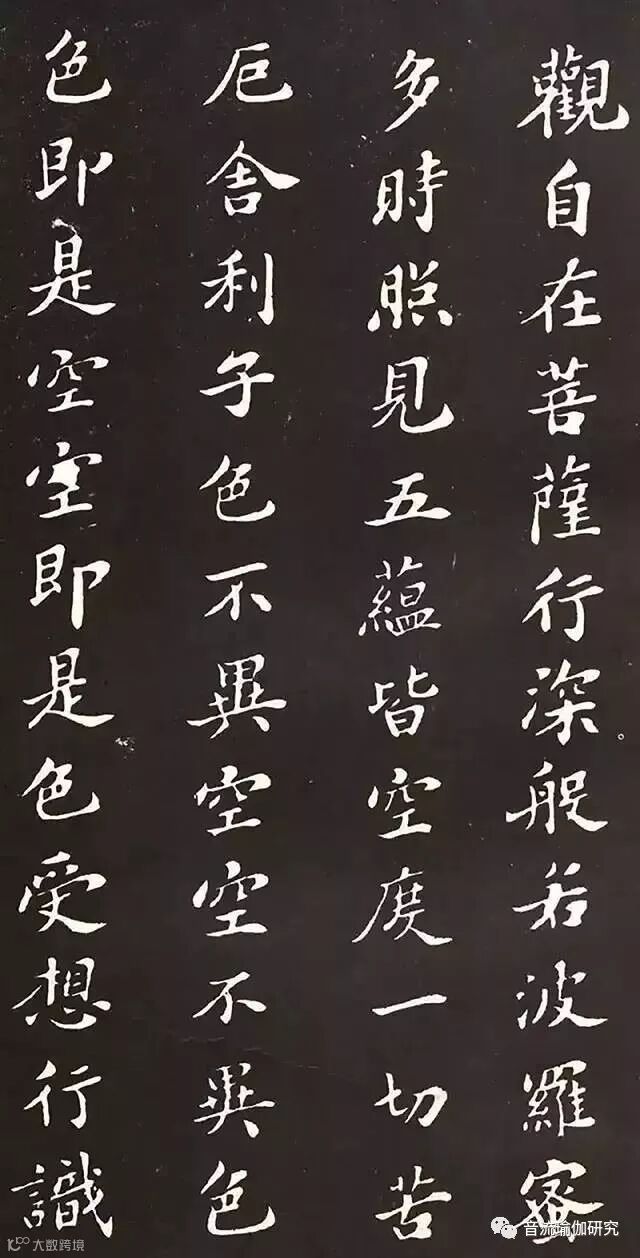 觀自在菩薩行深般若波羅蜜
多時照見五蘊皆空度一切苦
厄舍利子色不異空空不異色
色即是空空即是色受想行識
大数跨境
音流瑜伽研究